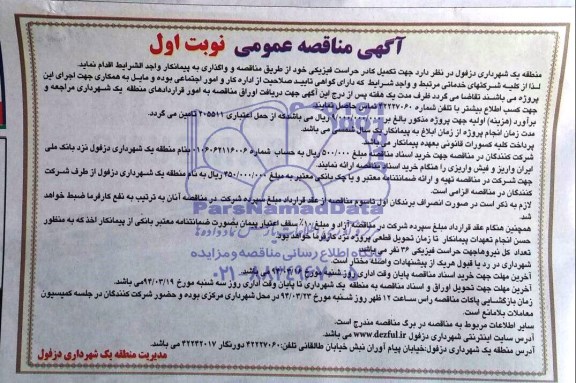 آگهی مناقصه عمومی نوبت اول
منطقه یک شهرداری دزفول در نظر دارد جهت تکمیل کادر حراست فیزیکی خود از طریق مناقصه و واگذاری به پیمانکار واجد الشرایط اقدام نماید.
لذا از کلیه شرکتهای خدماتی مرتبط و واجد شرایط که دارای گواهی تایید صلاحیت از اداره کار و امور اجتماعی بوده و مایل به همکاری جهت اجرای این
پروژه می باشند تقاضا می گردد ظرف مدت یک هفته پس از درج این آگهی جهت دریافت اوراق مناقصه به امور قراردادهای منطقه یک شهرداری مراجعه و
جهت کسب اطلاع بیشتر با تلفن شماره ۴۲۲۲۷۰۶۰ تماس حاصل نمایند.
برآورد (هزینه) اولیه جهت پروژه مذکور بالغ بر ریال می باشد که از حمل اعتباری ۲۰۵۵۱۱ تامین می گردد.
مدت زمان انجام پروژه از زمان ابلاغ به پیمانکار یک سال شمسی می باشد.
پرداخت کلیه کسورات قانونی بعهده پیمانکار می باشد.
شرکت کنندگان در مناقصه جهت خرید اسناد مناقصه مبلغ ۵۰۰/۰۰۰ ریال به حساب شماره ۰۱۰۶۰۶۲۱۱۶۰۰۶ بنام منطقه یک شهرداری دزفول نزد بانک ملی
ایران واریز و فیش واریزی را هنگام خرید اسناد مناقصه ارائه نمایند.
جهت شرکت در مناقصه تهیه و ارائه ضمانتنامه معتبر و یا چک بانکی معتبر به مبلغ ۳۵۰/۰۰۰/۰۰۰ ریال به نام منطقه یک شهرداری دزفول از طرف شرکت
کنندگان در مناقصه الزامی است.
لازم به ذکر است در صورت انصراف برندگان اول تا سوم مناقصه از عقد قرارداد مبلغ سپرده شرکت در مناقصه آنان به ترتیب به نفع کارفرما ضبط خواهد
شد.
همچنین هنگام عقد قرارداد مبلغ سپرده شرکت در مناقصه آزاد و مبلغ ۱۰٪ سقف اعتبار پیمان بصورت ضمانتنامه معتبر بانکی از پیمانکار اخذ که به منظور
حسن انجام تعهدات پیمانکار تا زمان تحویل قطعی پروژه نزد کارفرما خواهد بود.
تعداد کل نیروها جهت حراست فیزیکی ۳۶ نفر می باشد.
شهرداری در رد یا قبول هریک از پیشنهادات واصله مختار است.
آخرین مهلت جهت خرید اسناد مناقصه پایان وقت اداری روز شنبه مورخ می باشد.
آخرین مهلت جهت تحویل اوراق و اسناد مناقصه به منطقه یک شهرداری تا پایان وقت اداری روز سه شنبه مورخ ۹۳/۰۳/۱۹ می باشد.
زمان بازگشایی پاکات مناقصه راس ساعت ۱۲ ظهر روز شنبه مورخ ۹۳/۰۳/۲۳ در محل شهرداری مرکزی بوده و حضور شرکت کنندگان در جلسه کمیسیون
معاملات بلامانع است.
سایر اطلاعات مربوط به مناقصه در برگ مناقصه مندرج است.
آدرس سایت اینترنتی شهرداری دزفول www.dezful.ir می باشد.
آدرس منطقه یک شهرداری دزفول:خیابان پیام آوران نبش خیابان طالقانی تلفن:۴۲۲۲۷۰۶۰ دورنگار ۴۲۲۴۲۰۱۷ می باشد.
مدیریت منطقه یک شهرداری دزفول
ParsNamadData
پایگاه اطلاع رسانی مناقصه و مزایده